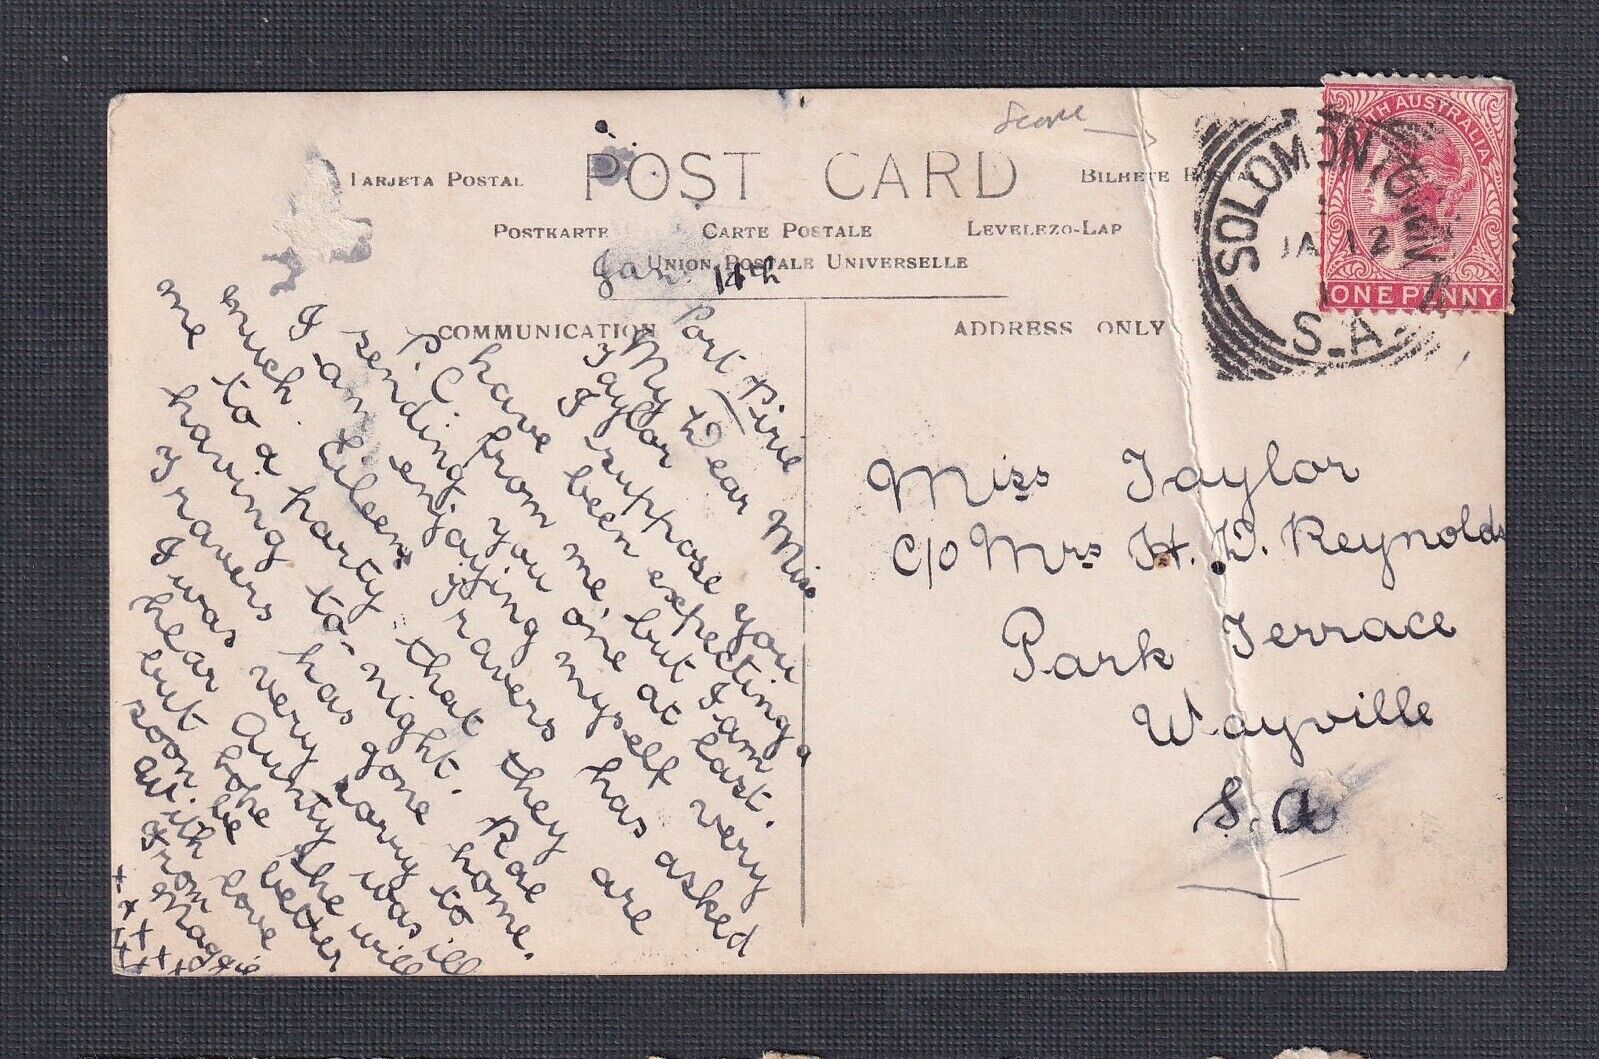 Scone
TARJETA POSTAL POST CARD BILHETE POSTAL
POSTKARTE CARTE POSTALE LEVELEZO-LAP
UNION POSTALE UNIVERSELLE
COMMUNICATION
ADDRESS ONLY
SOUTH AUSTRALIA
ONE PENNY
SOLOMONTOWN
JA 12
S.A
Jan. 11th
Port Pirie
My Dear Miss
Taylor I suppose you
have been expecting a
P.C. from me, but I am
sending you one at last.
I am enjoying myself very
much. Eileen Travers has asked
me to a party that they are
having to-night. Rae
Travers has gone home.
I was very sorry to
hear Aunty was ill
but hope she will
soon be better
With love
From
Maggie
x x x x x x x x x
Miss Taylor
c/o Mrs H. D. Reynolds
Park Terrace
Wayville
S.A